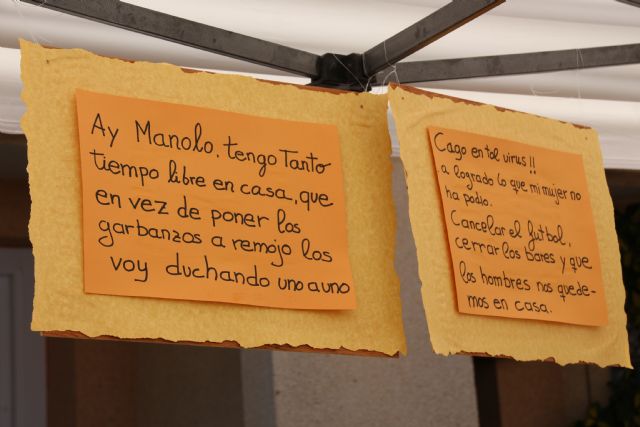 Ay Manolo, tengo Tanto
tiempo libre en casa, que
en vez de poner los
garbanzos a remojo los
voy duchando uno a uno
Cago en tol virus!!
a logrado lo que mi mujer no
ha podio.
Cancelar el futbol,
cerrar los bares y que
los hombres nos quede-
mos en casa.